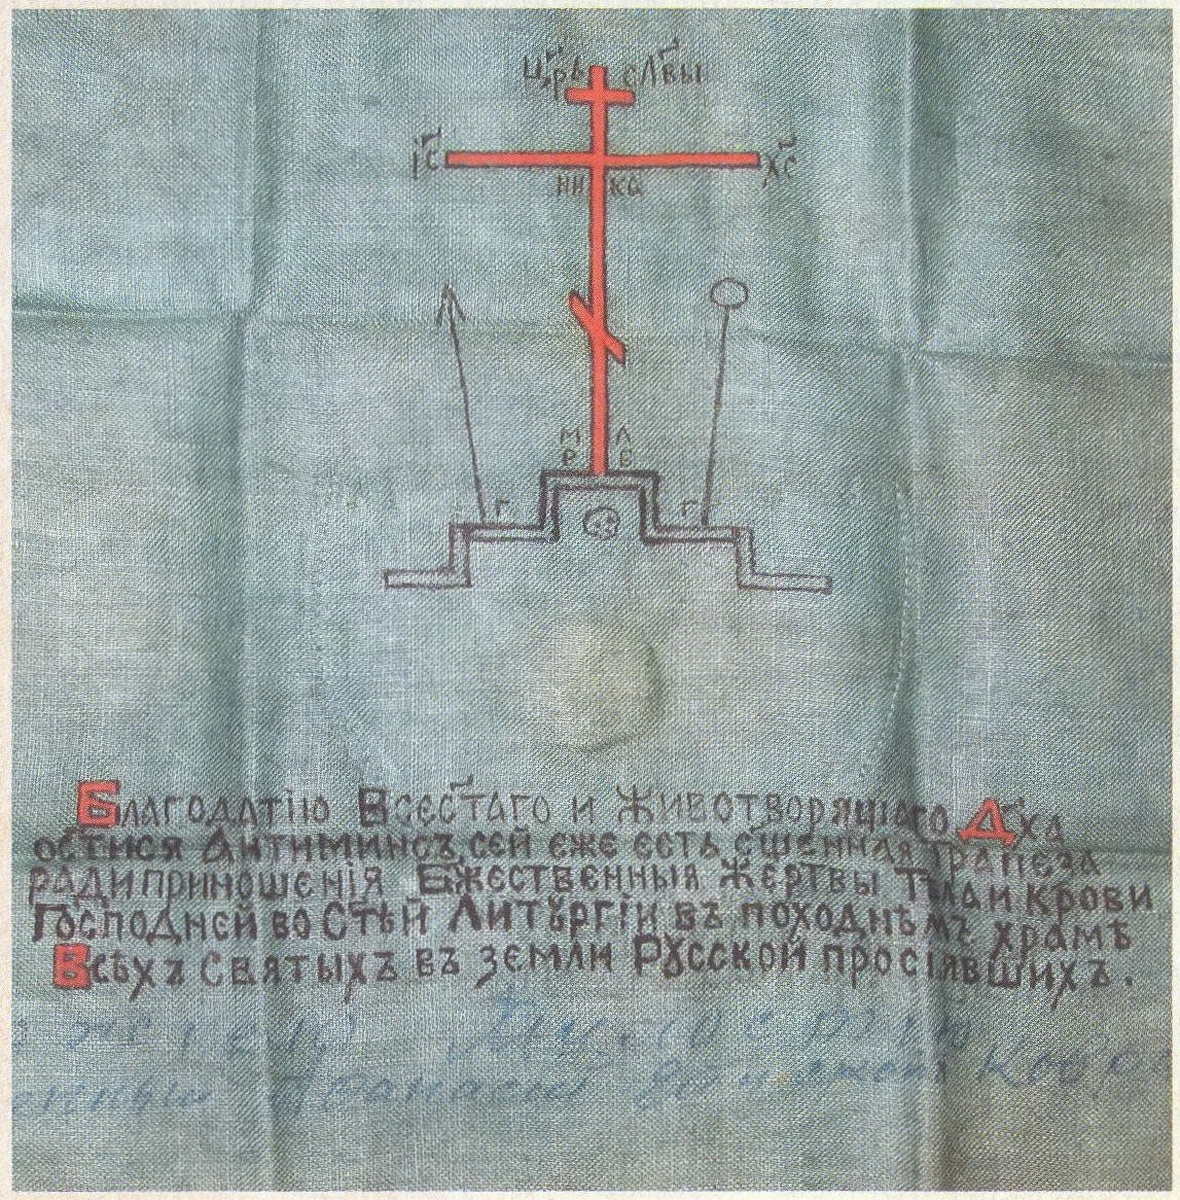 Црь слвы
іс хс
ни ка
М Л
Р Б
Г Г
Благодатію Всестаго и Животворящаго Дха
остися Антиминсъ, сей еже есть сшенная Трапеза
ради приношенія Бжественныя Жертвы Тѣла и Крови
Господней во Стѣй Литꙋргіи въ походнѣмъ храмѣ
Всѣхъ Святыхъ въ земли Рꙋсской просіявшихъ.